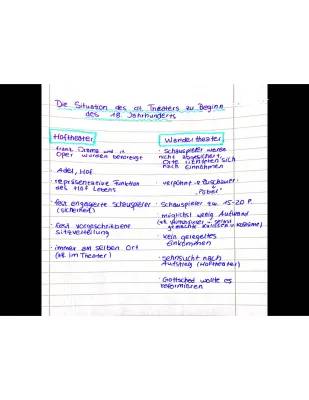 Die Situation des dt. Theaters zu Beginn
des 18. Jahrhunderts
Hoftheater
franz. Drama und it.
Oper wurden bevorzugt
Adel, Hof
repräsentative Funktion
des Hof Lebens
fest engagierte Schauspieler
(Sicherheit)
fest vorgeschriebene
Sitzverteilung
immer am selben Ort
(z.B. im Theater)
Wandertheater
Schauspieler waren
nicht abgesichert,
Orte richteten sich
nach Einnahmen
verpönt →
"Pöbel"
Schauspieler ca. 15-20 P.
möglichst wenig Aufwand
kein geregeltes
Einkommen
Sehnsucht nach
Aufstieg (Hoftheater)
Gottsched wollte es
reformieren